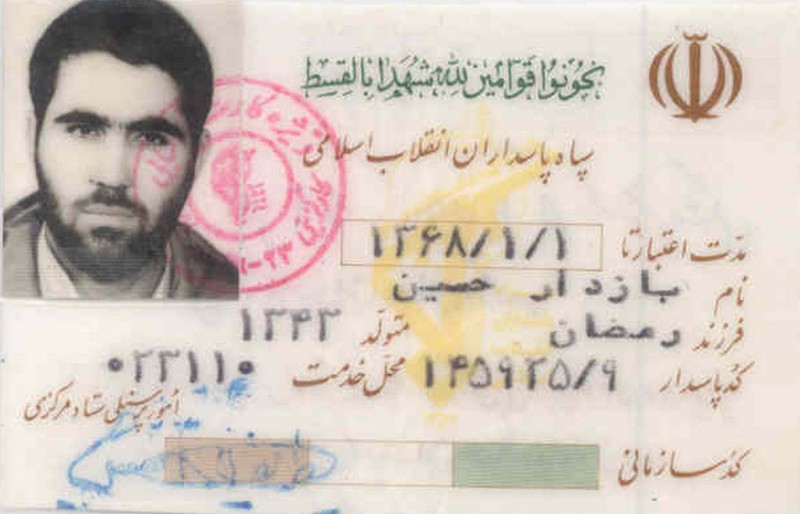 كونوا قوامين لله شهداء بالقسط
سپاه پاسداران انقلاب اسلامی
مدت اعتبار تا ۱۳۶۸/۱/۱
نام بازدار حسین
فرزند رمضان متولد ۱۳۴۳
کد پاسدار ۱۴۵۹۲۵/۹ محل خدمت ۰۲۳۱۱۰
امور پرسنلی ستاد مرکزی
کد سازمانی